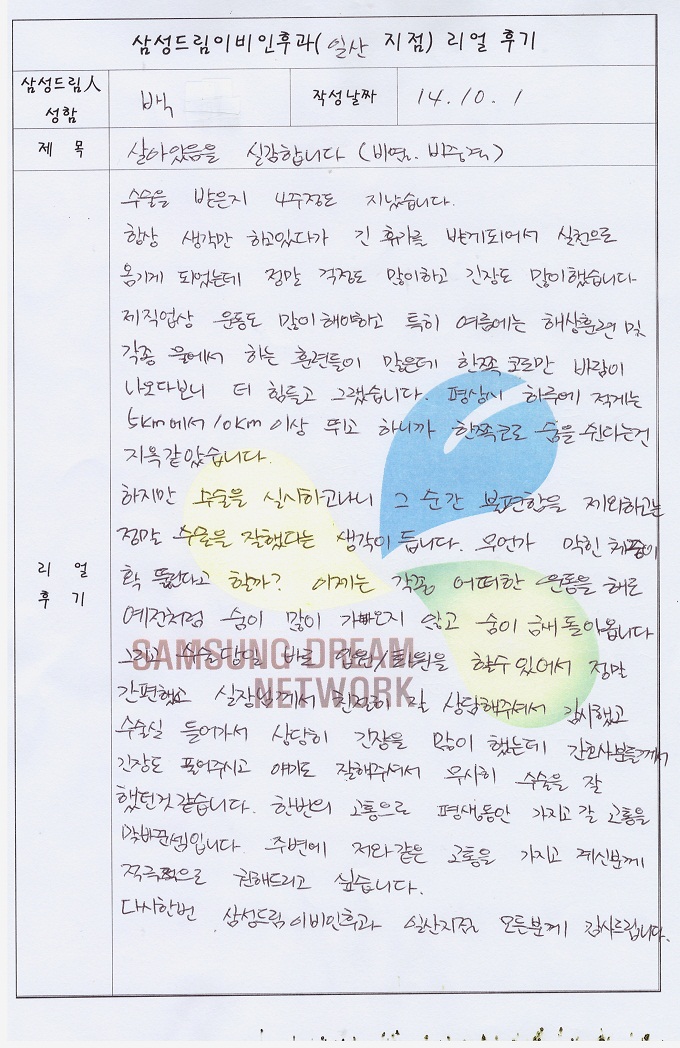 삼성드림이비인후과(일산 지점) 리얼 후기
삼성드림人 성함
백
작성날짜
14. 10. 1
제 목
살아있음을 실감합니다 (비염, 비중격)
리 얼 후 기
수술을 받은지 4주정도 지났습니다.
항상 생각만 하고있다가 긴 휴가를 받게되어서 실천으로
옮기게 되었는데 정말 걱정도 많이하고 긴장도 많이했습니다
제직업상 운동도 많이해야하고 특히 여름에는 해상훈련 및
각종 물에서 하는 훈련들이 많은데 한쪽 코로만 바람이
나오다보니 더 힘들고 그랬습니다. 평상시 하루에 적게는
5km에서 10km 이상 뛰고 하니까 한쪽코로 숨을 쉰다는건
지옥같았습니다.
하지만 수술을 실시하고나니 그 순간 불편함을 제외하고는
정말 수술을 잘했다는 생각이 듭니다. 무언가 막힌 체증이
확 뚫렸다고 할까? 이제는 각종 어떠한 운동을 해도
예전처럼 숨이 많이 가빠오지 않고 숨이 금새 돌아옵니다
그리고 수술 당일 바로 입원/퇴원을 할수 있어서 정말
간편했고 실장님께서 친절히 잘 상담해주셔서 감사했고
수술실 들어가서 상당히 긴장을 많이 했는데 간호사분들께서
긴장도 풀어주시고 얘기도 잘해주셔서 무사히 수술을 잘
했던것 같습니다. 한번의 고통으로 평생동안 가지고 갈 고통을
맞바꾼셈입니다. 주변에 저와같은 고통을 가지고 계신분께
적극적으로 권해드리고 싶습니다.
다시한번 삼성드림이비인후과 일산지점 모든분께 감사드립니다.
SAMSUNG DREAM
NETWORK